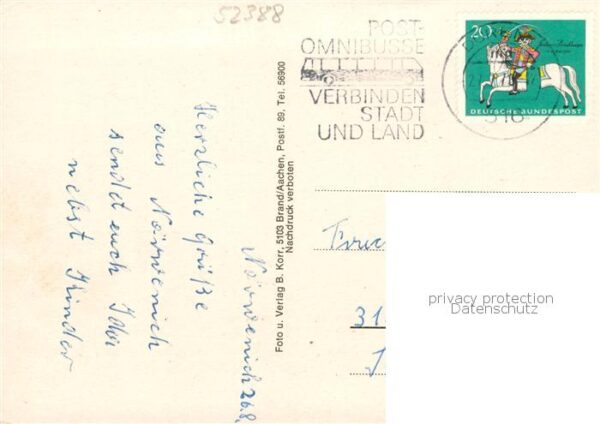 52388
POST-
OMNIBUSSE
VERBINDEN
STADT
UND LAND
20
DEUTSCHE BUNDESPOST
516
Nörvenich 26.8.
Herzliche Grüße
aus Nörvenich
sendet euch
nebst Kinder
Foto u. Verlag B. Korr, 5103 Brand/Aachen, Postf. 89, Tel. 56900
Nachdruck verboten
31
privacy protection
Datenschutz